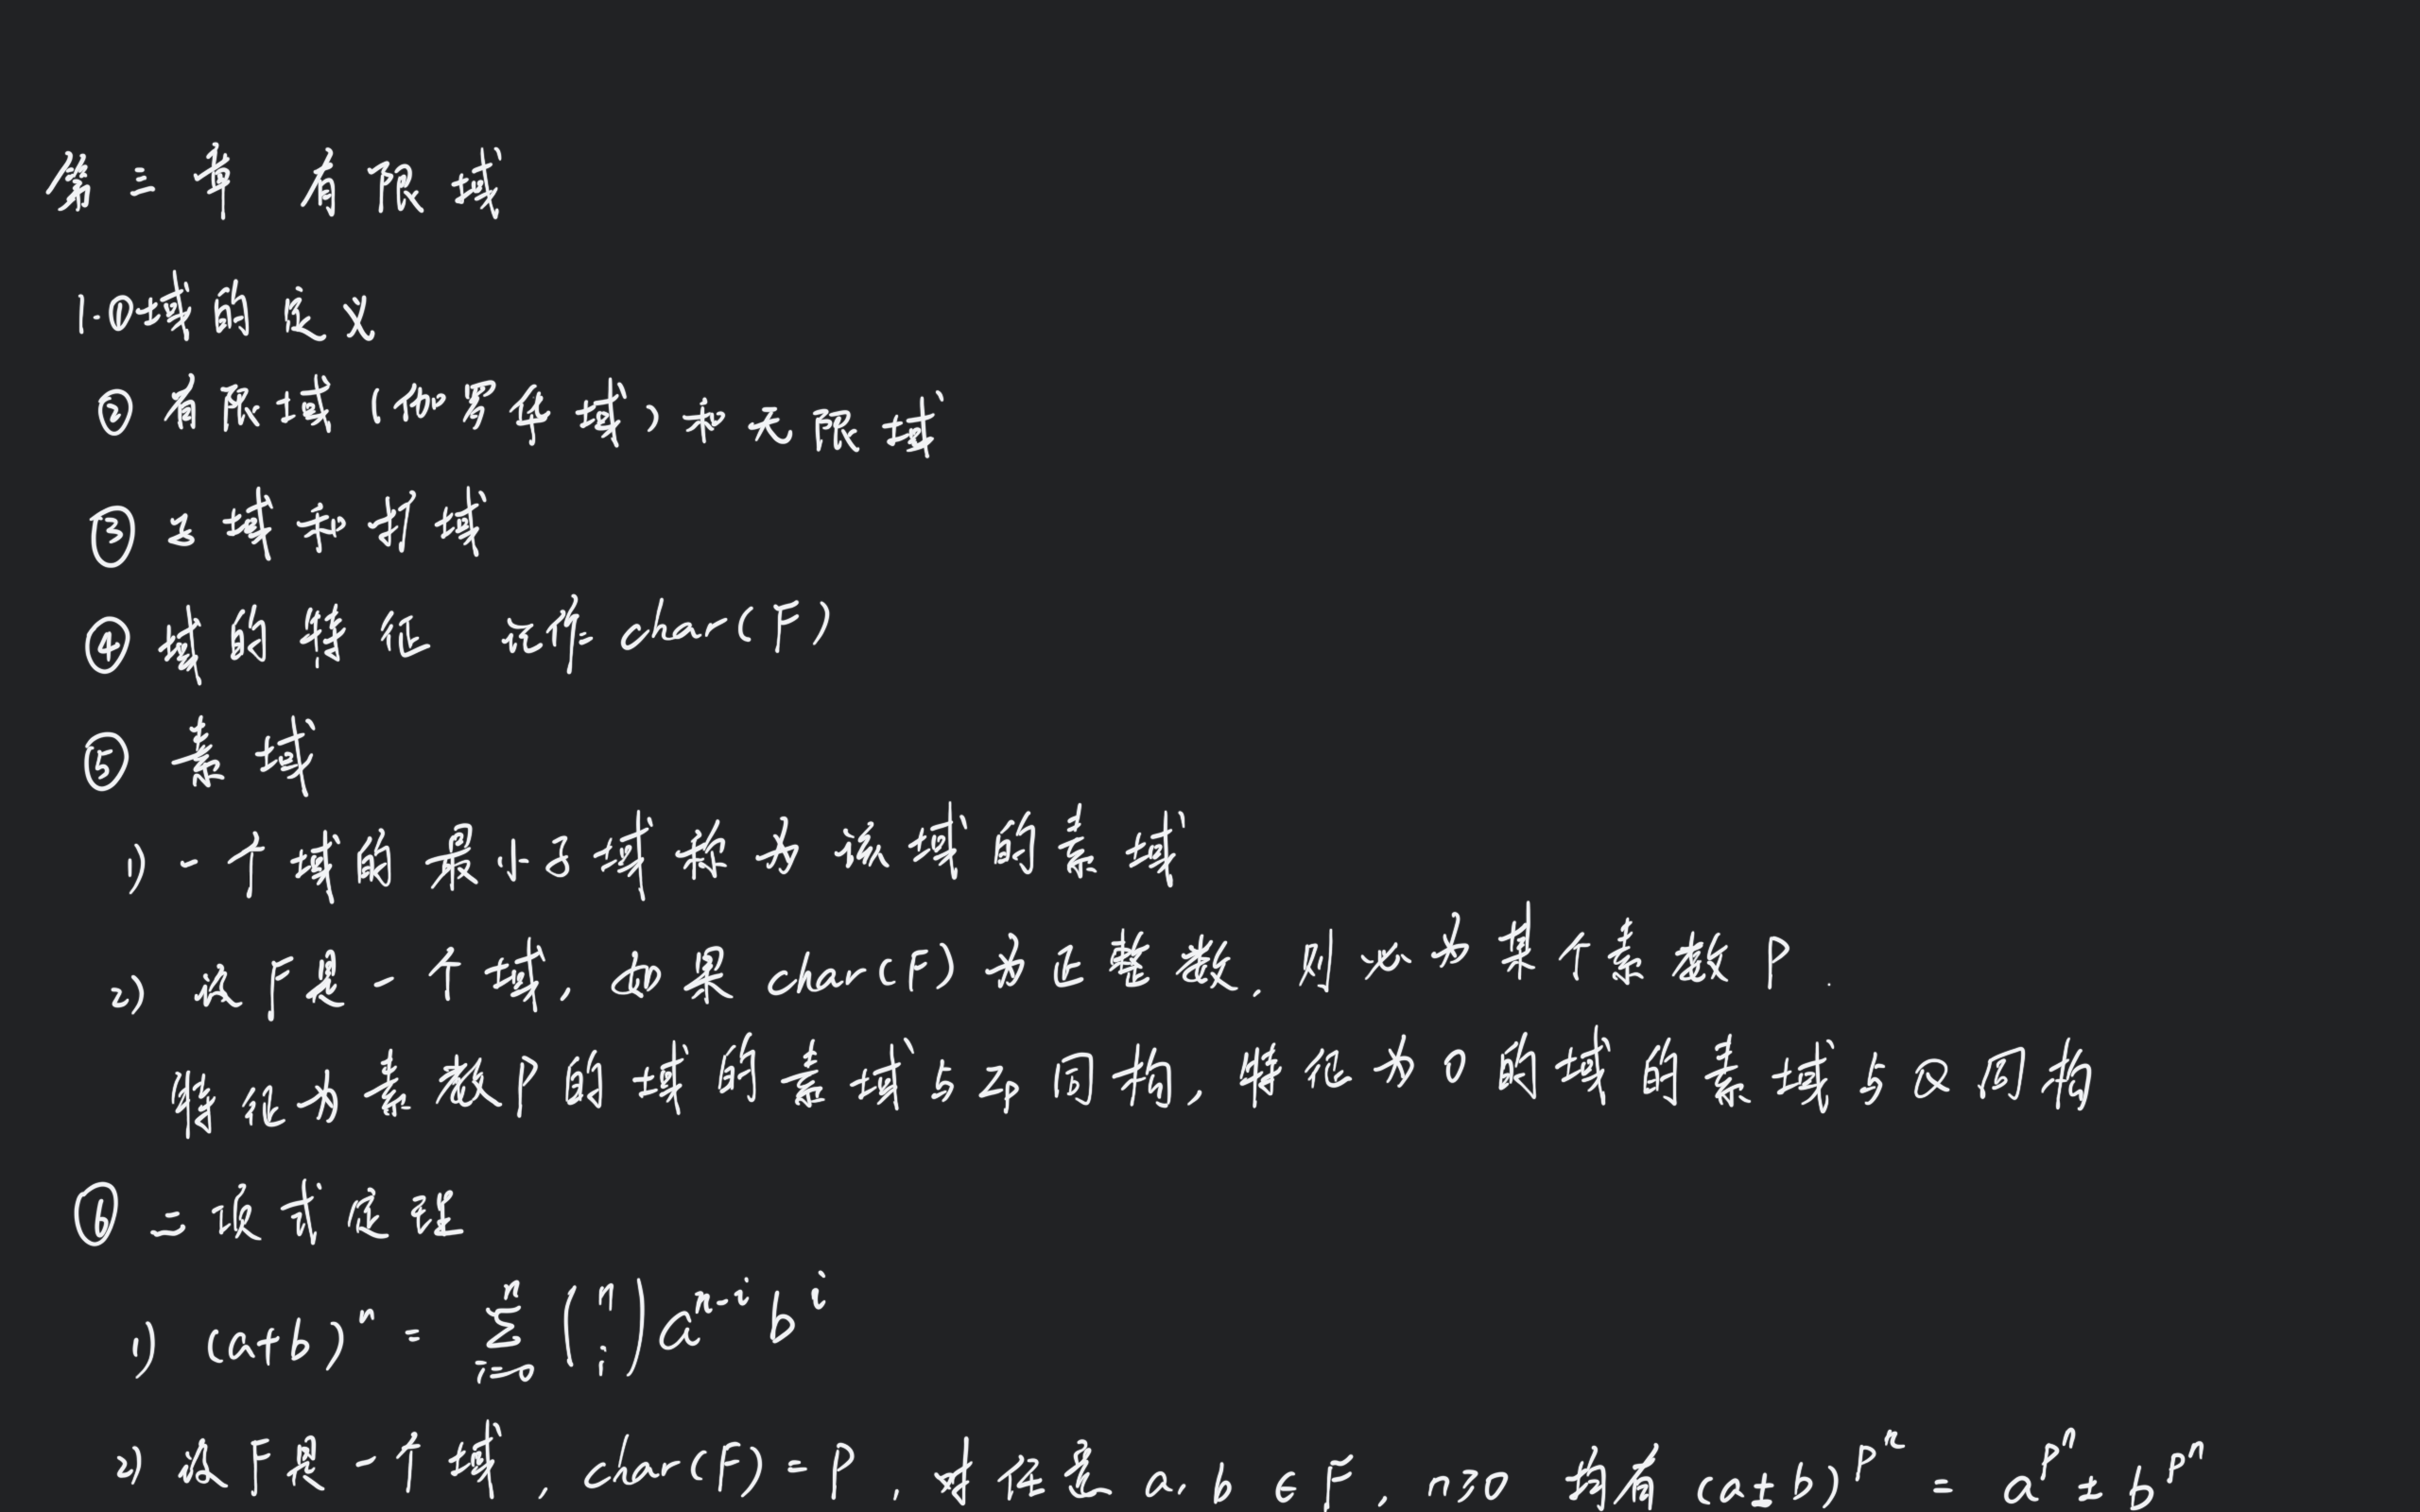 第三章 有限域
1.①域的定义
②有限域(伽罗华域)和无限域
③子域和扩域
④域的特征 记作 char(F)
⑤素域
1) 一个域的最小子域称为该域的素域
2) 设F是一个域, 如果char(F)为正整数, 则必为某个素数P.
特征为素数P的域的素域与Zp同构, 特征为0的域的素域与Q同构
⑥二项式定理
1) (a+b)^n = ∑_{i=0}^{n} (n i) a^{n-i} b^i
2) 设F是一个域, char(F)=P, 对任意a, b∈F, n≥0 均有(a±b)^{P^n} = a^{P^n} ± b^{P^n}